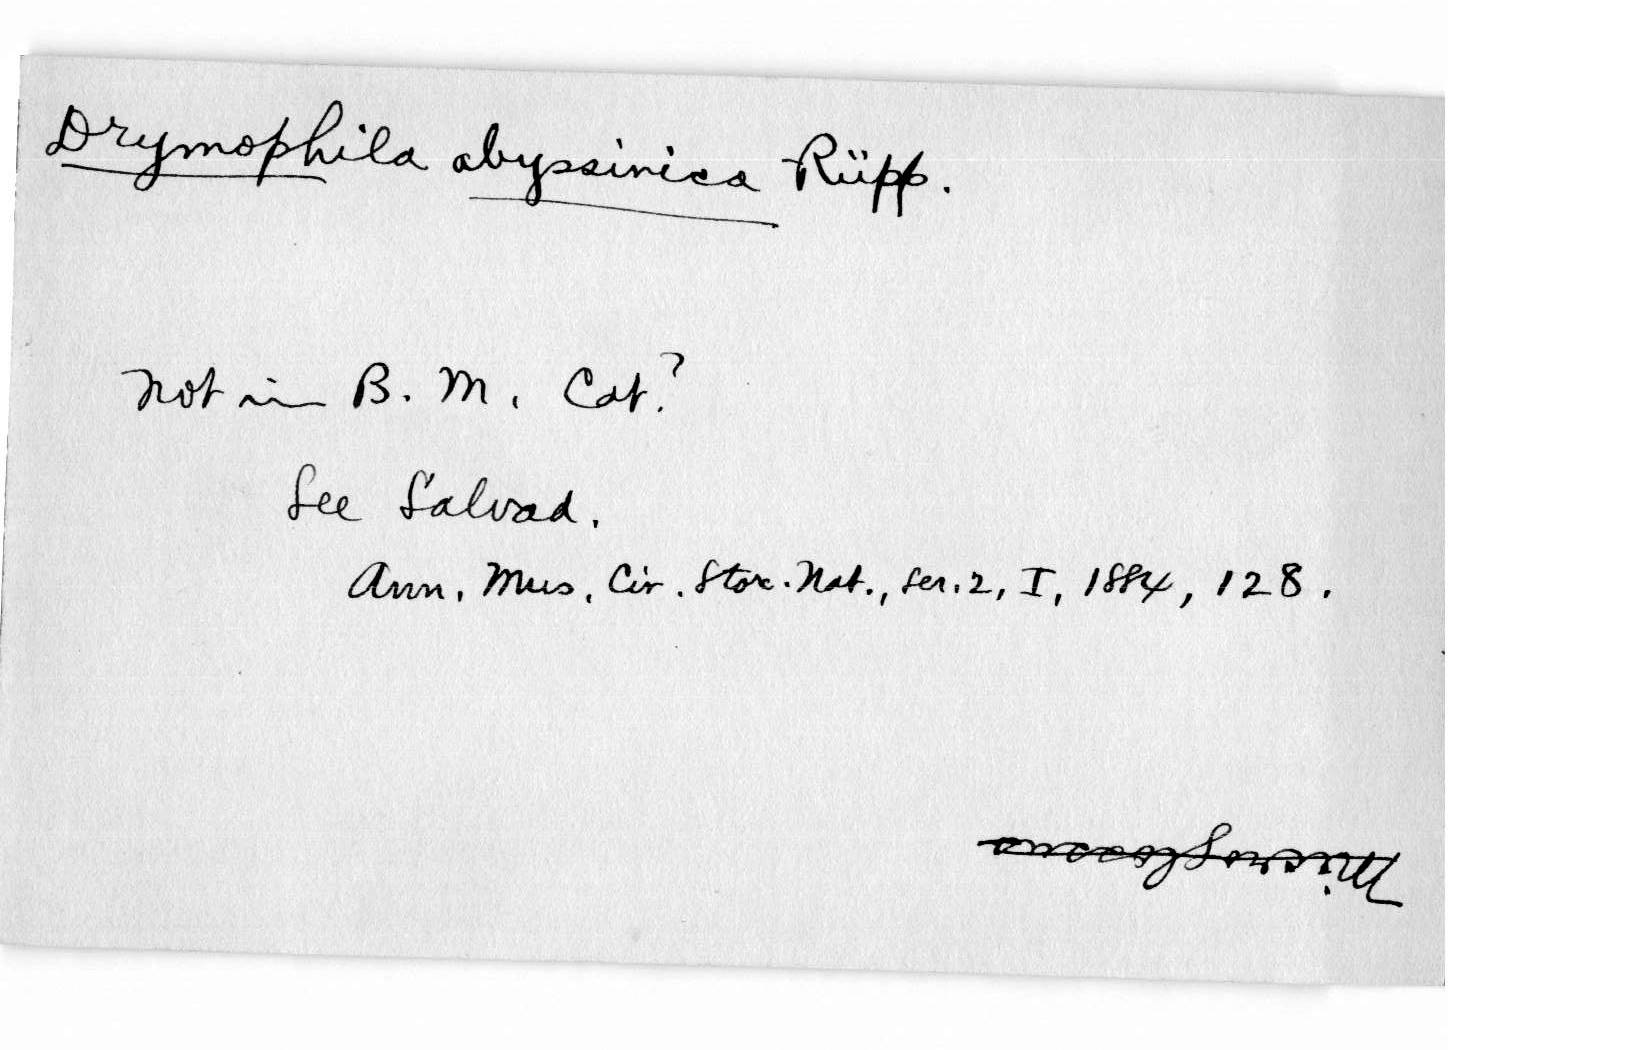 Drymophila abyssinica Rüpp.
Not in B. M. Cat.?
See Salvad.
Ann. Mus. Civ. Stor. Nat., Ser. 2, I, 1884, 128.
Microglossus